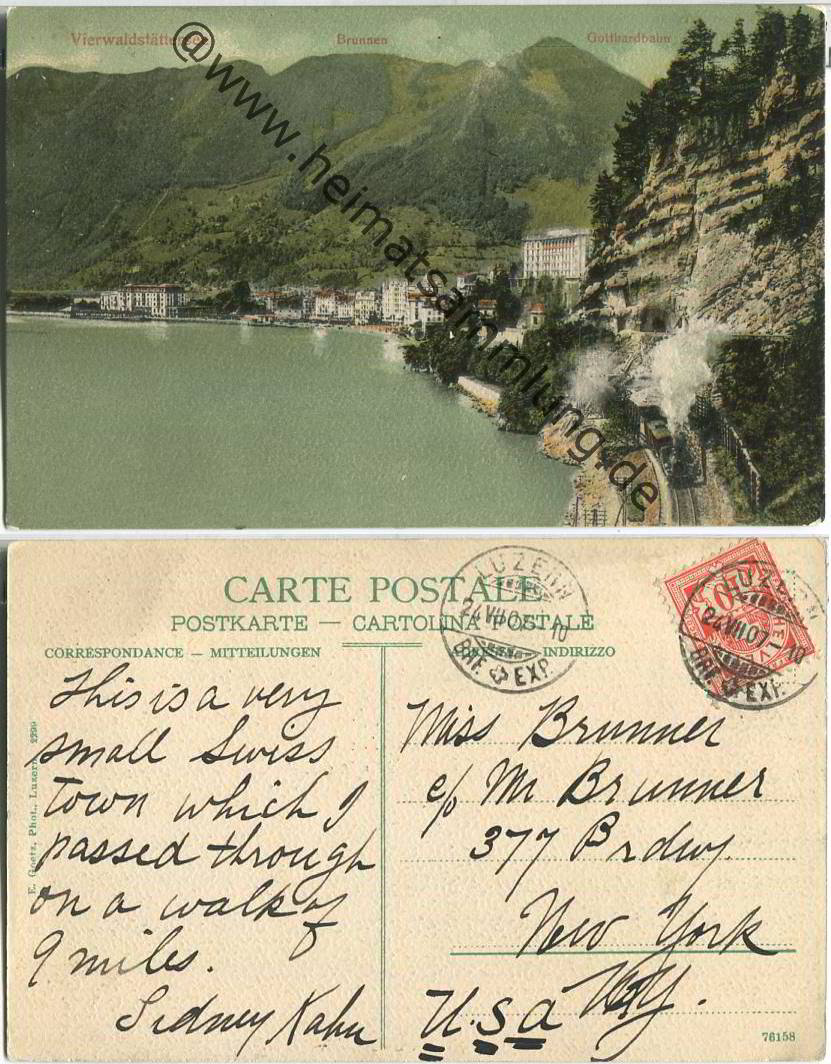 Vierwaldstättersee
Brunnen
Gotthardbahn
@www.heimatsammlung.de
CARTE POSTALE
POSTKARTE — CARTOLINA POSTALE
CORRESPONDANCE — MITTEILUNGEN
INDIRIZZO
LUZERN
24.VII.07. 10
BRF. EXP.
LUZERN
24.VII.07. 10
BRF. EXP.
10
HELV
E. Goetz, Phot., Luzern. 2299
This is a very
small Swiss
town which I
passed through
on a walk of
9 miles.
Sidney Kahn
Miss Brunner
c/o Mr Brunner
377 Brdwy.
New York
N.Y.
U.S.a
76158